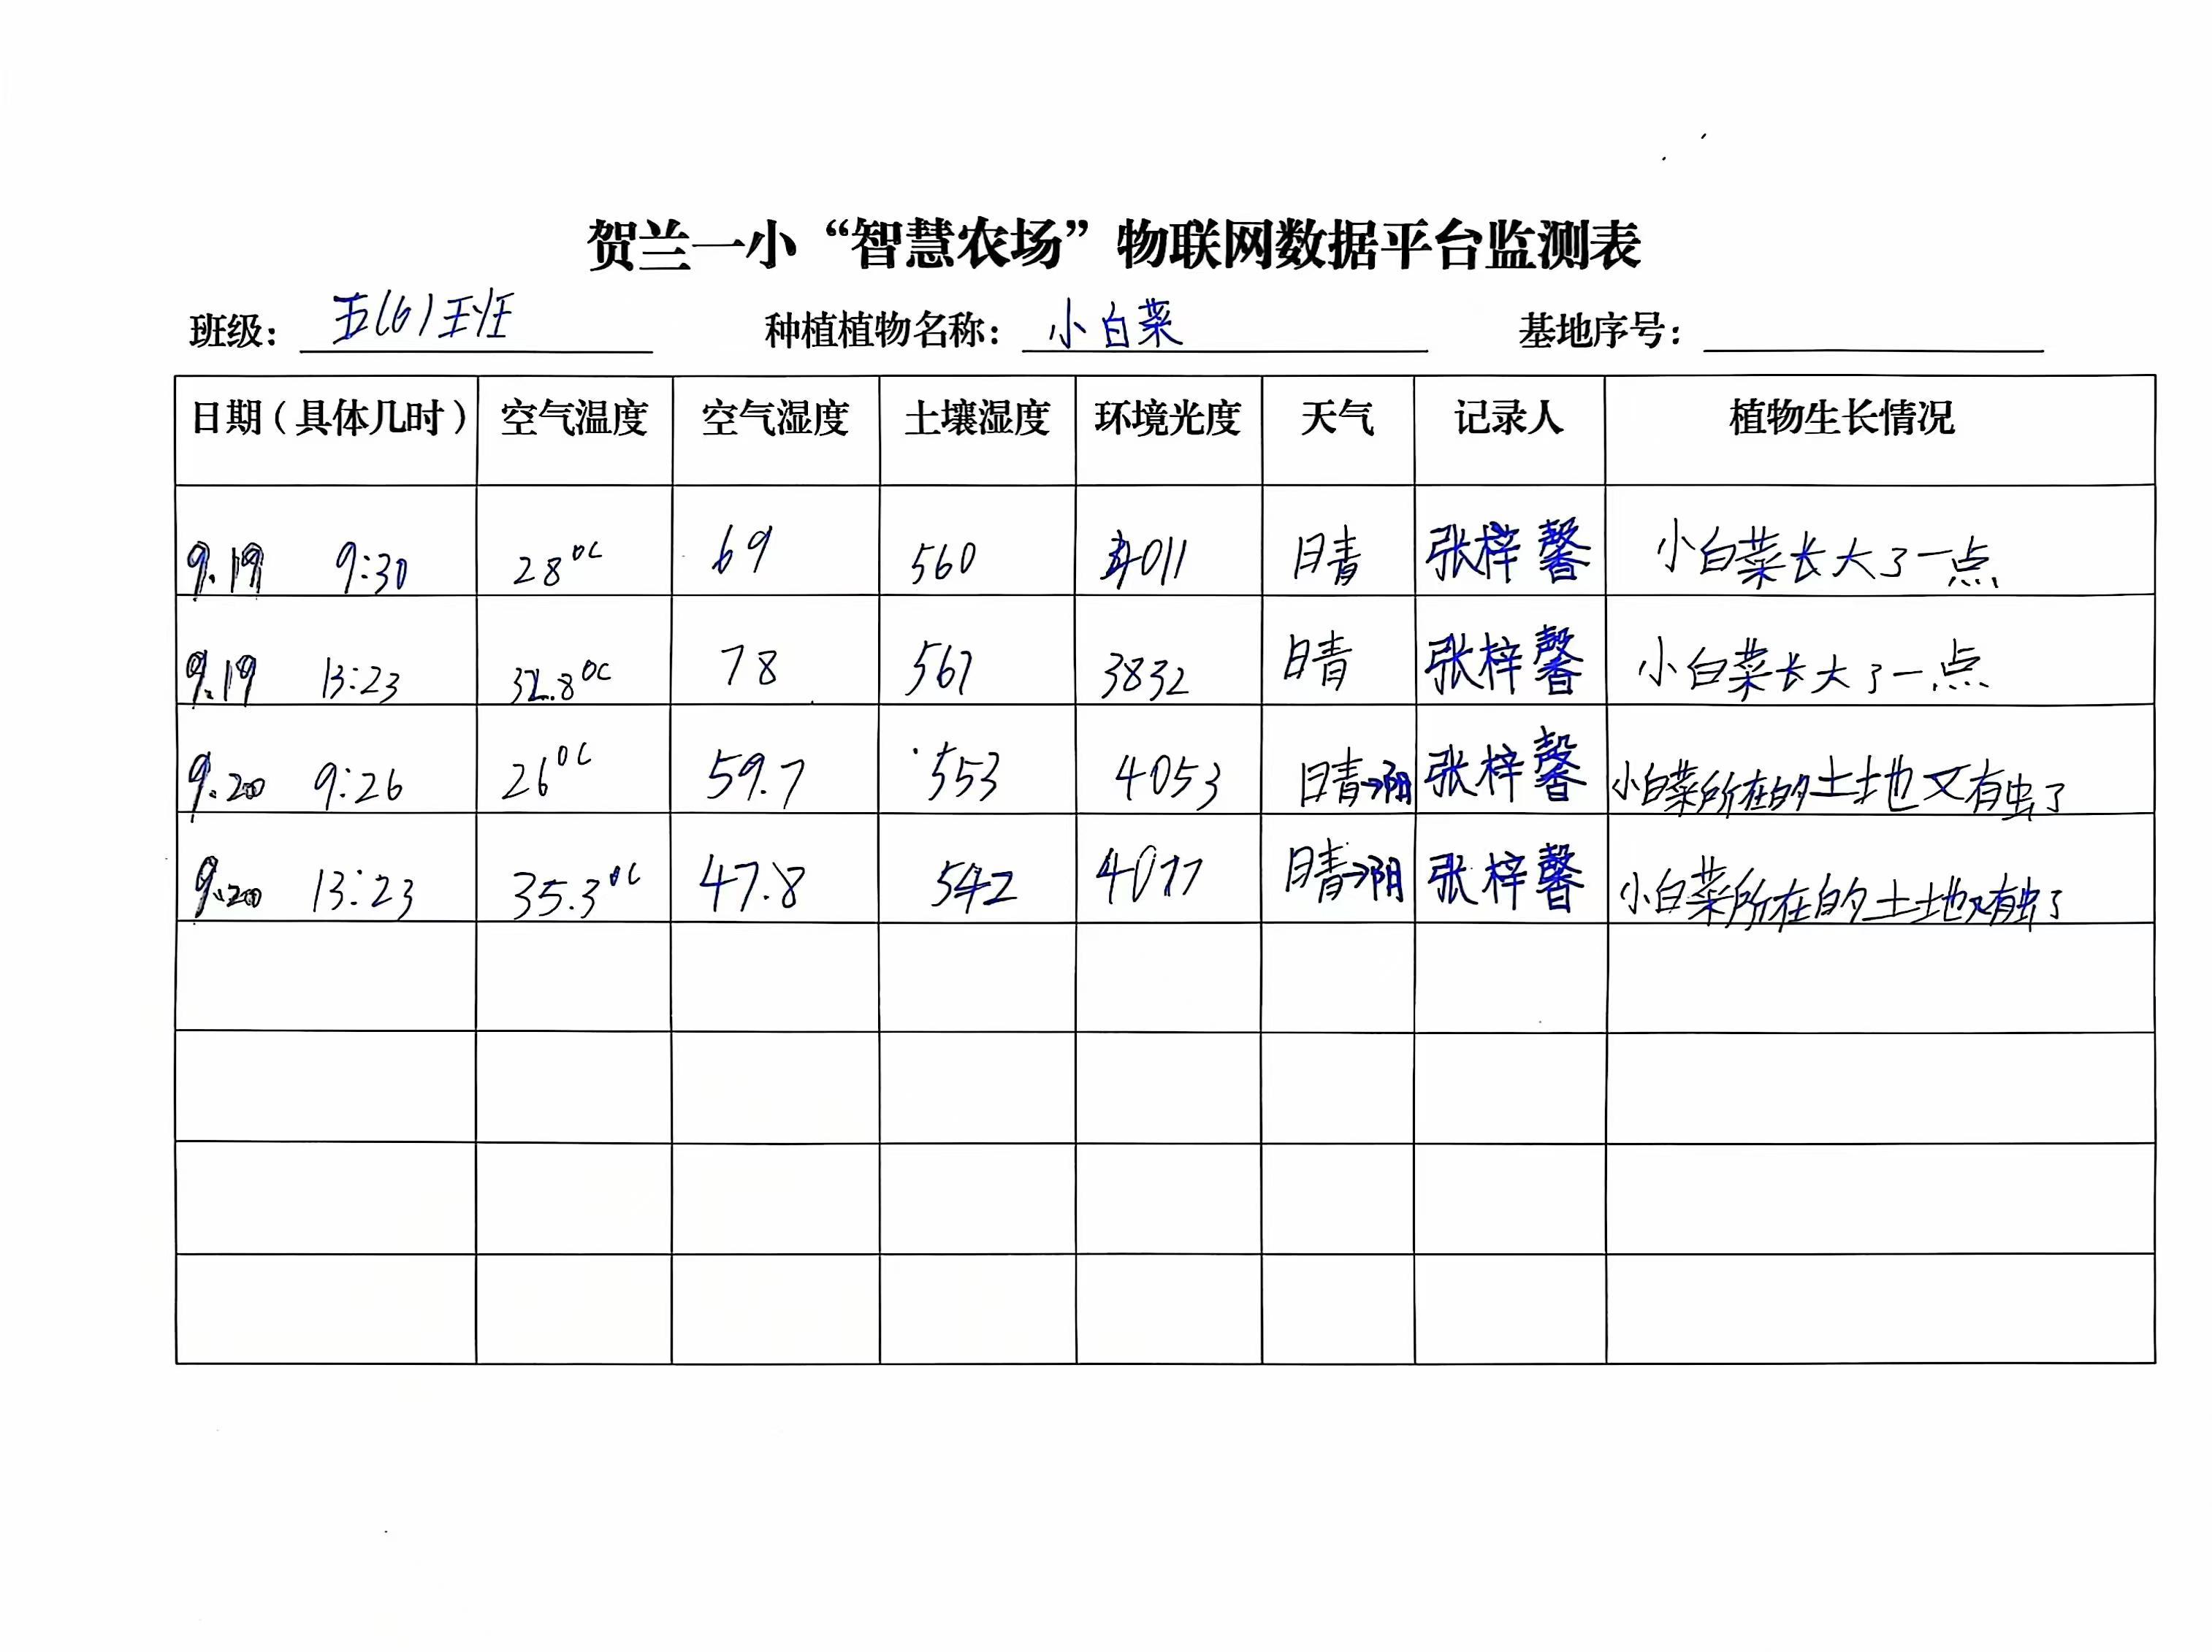 贺兰一小“智慧农场”物联网数据平台监测表
班级： 五(6)班 种植植物名称： 小白菜 基地序号：
日期（具体几时） 空气温度 空气湿度 土壤湿度 环境光度 天气 记录人 植物生长情况
9.19 9:30 28℃ 69 560 4011 晴 张梓馨 小白菜长大了一点
9.19 13:23 32.8℃ 78 567 3832 晴 张梓馨 小白菜长大了一点
9.20 9:26 26℃ 59.7 553 4053 晴→阴 张梓馨 小白菜所在的土地又有虫了
9.20 13:23 35.3℃ 47.8 542 4077 晴→阴 张梓馨 小白菜所在的土地又有虫了